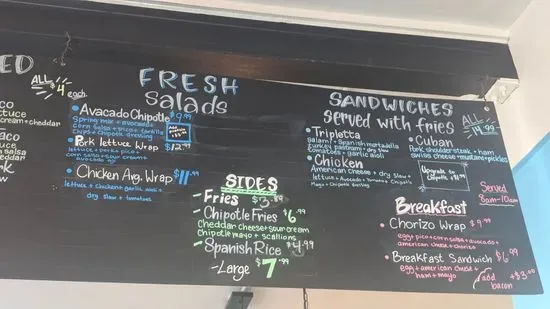 ED
ALL
$4
each
aco
cream+cheddar
aco
FRESH
Salads
• Avacado Chipotle $9.99
Spring mix + avocado +
corn salsa + pico + tortilla
chips + Chipotle dressing
• Pork lettuce Wrap $12.99
lettuce + pork + pico +
corn salsa + sour cream +
avocado
• Chicken Avg. Wrap $11.99
lettuce + chicken + garlic aioli +
dry slaw + tomatoes
SIDES
- Fries $3.99
- Chipotle Fries $6.99
Cheddar cheese + sour cream
Chipotle mayo + scallions
- Spanish Rice $4.99
- Large $7.99
SANDWICHES
Served with fries
ALL
14.99
• Tripletta
Salami + Spanish mortadella
turkey pastrami + dry slaw
tomatoes + garlic aioli
• Chicken
American cheese + dry slaw +
lettuce + Avocado + Tomato + Chipotle
Mayo + Chipotle dressing
• Cuban
Pork shoulder steak + ham
swiss cheese + mustard + pickles
Upgrade to
Chipotle
Served
8am-10am
Breakfast
• Chorizo Wrap $9.99
egg + pico + corn salsa + avocado +
american cheese + chorizo
• Breakfast Sandwich $6.99
egg + american cheese +
ham + mayo
add +$3.00
bacon